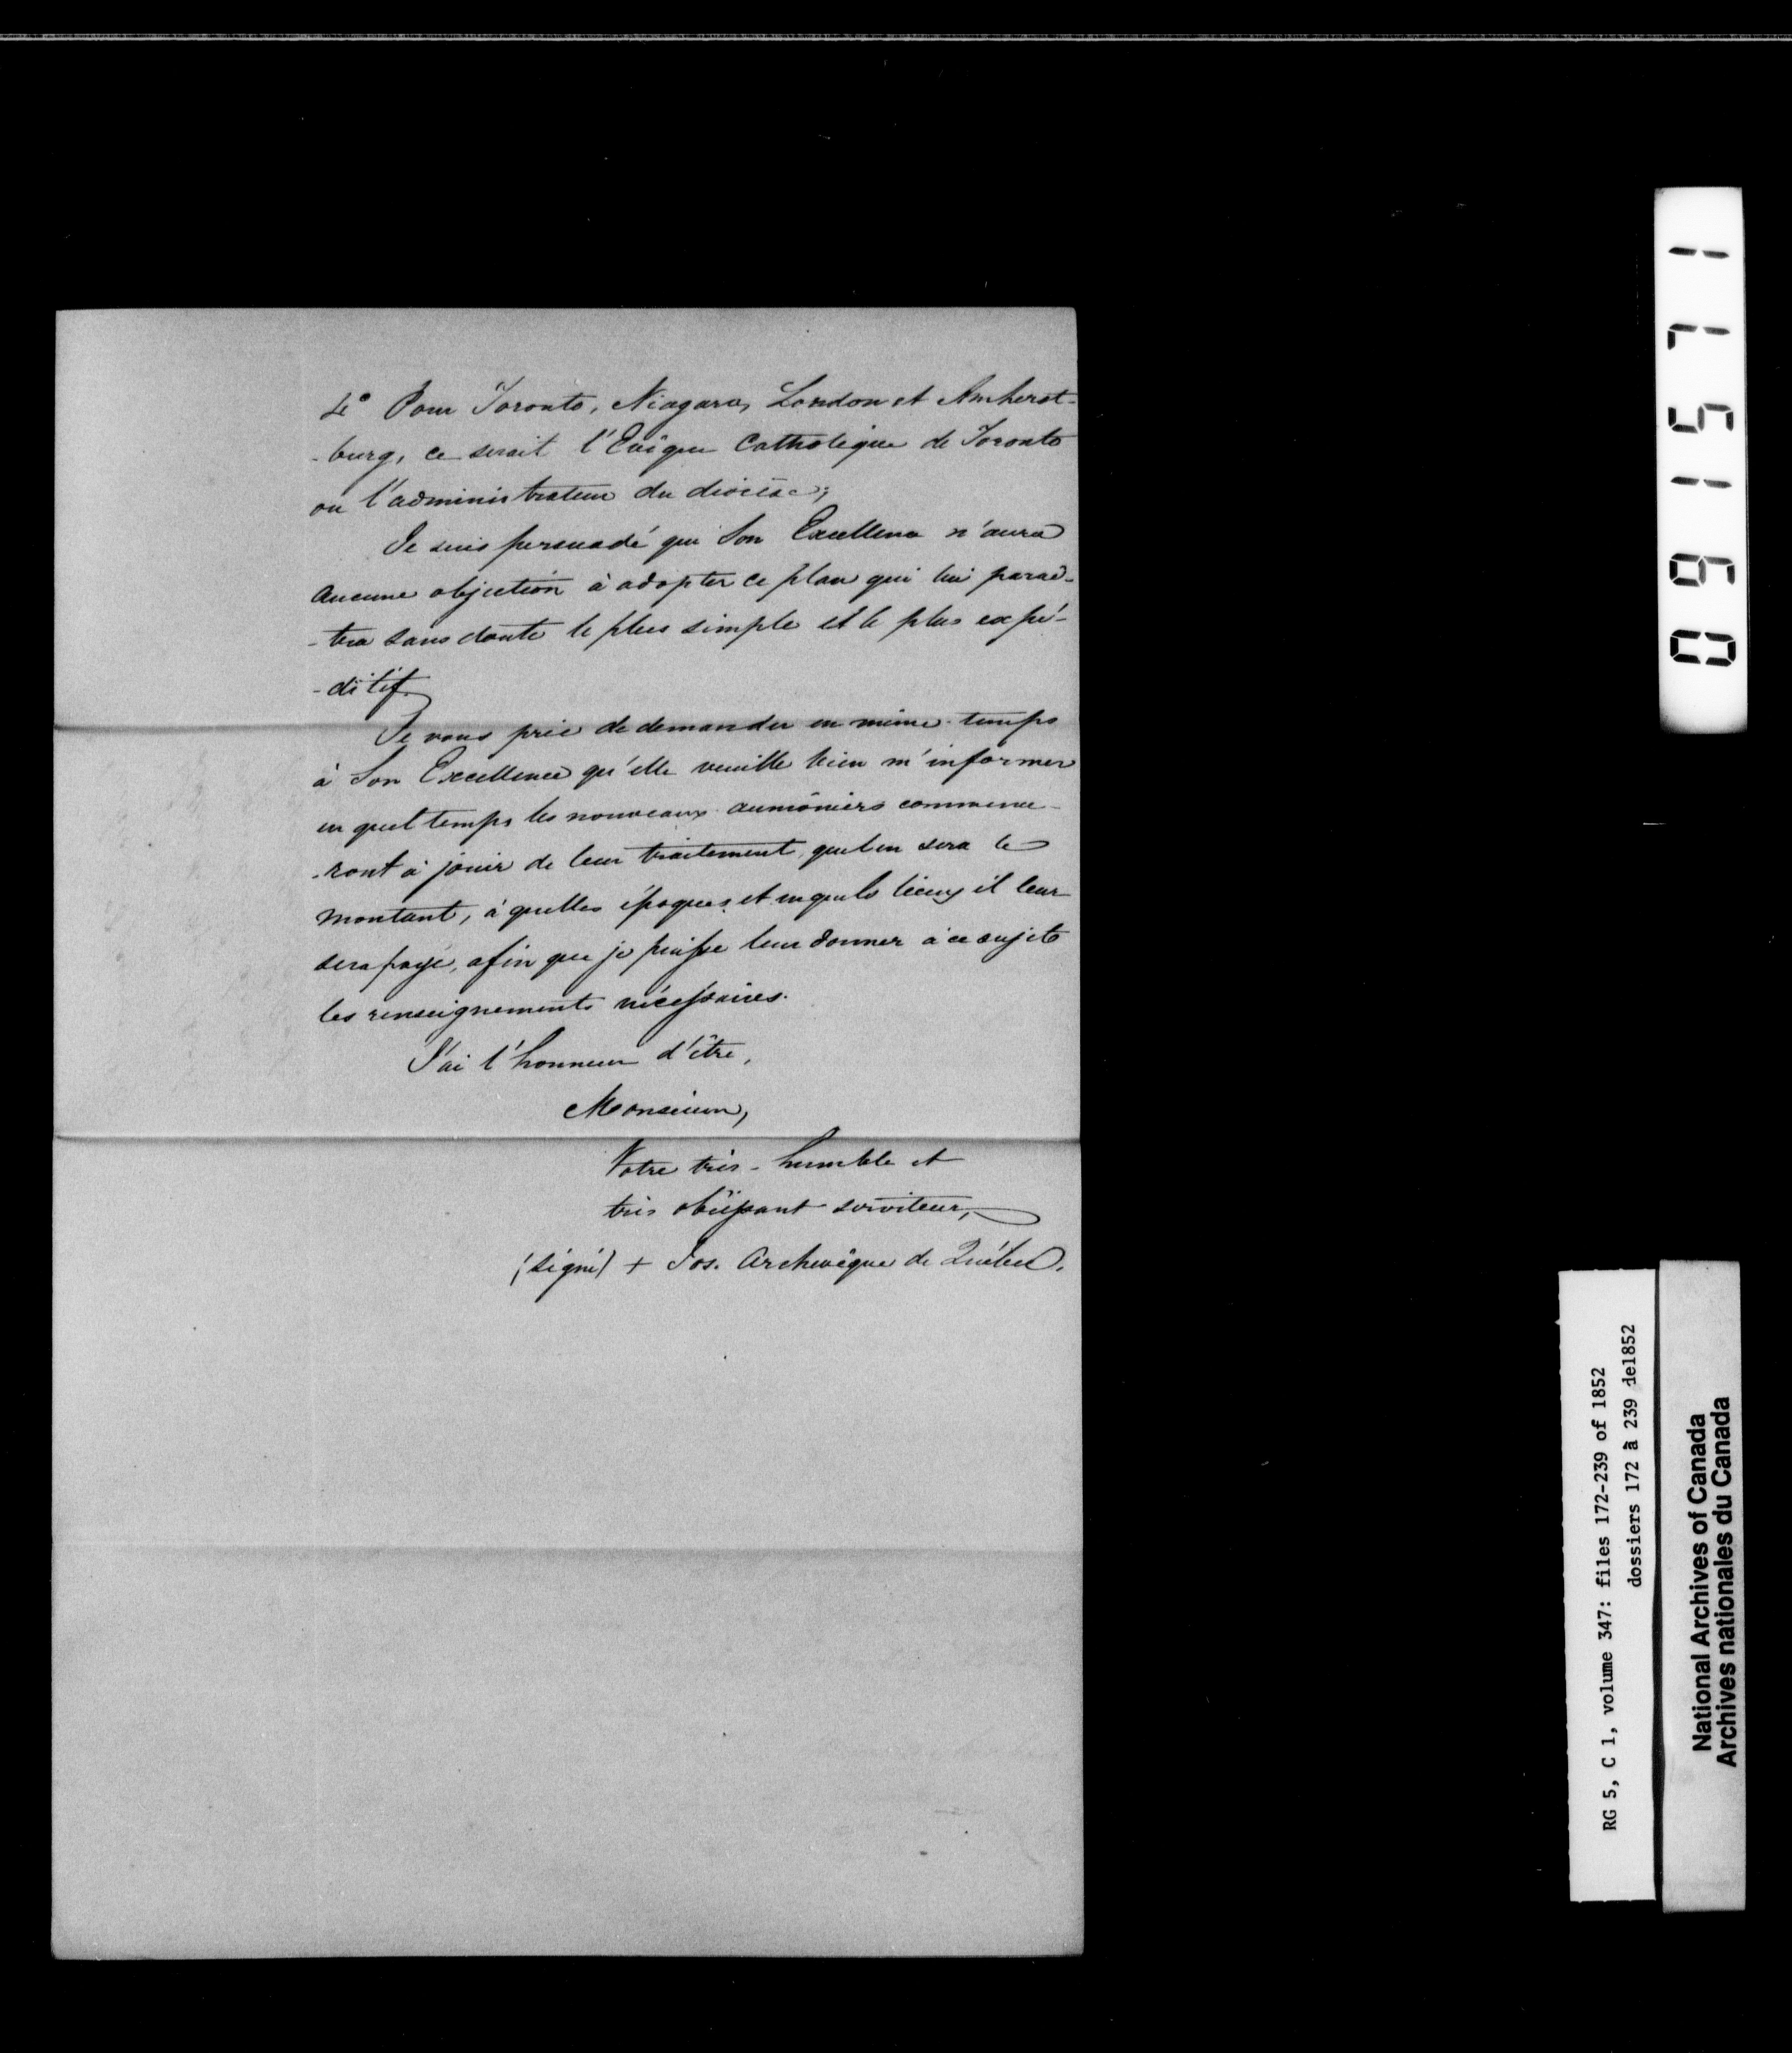 4° Pour Toronto, Niagara, London et Amherst-
-burg, ce serait l'Evêque Catholique de Toronto
ou l'administrateur du diocèse;
Je suis persuadé que Son Excellence n'aura
aucune objection à adopter ce plan qui lui paraî-
-tra sans doute le plus simple et le plus expé-
-ditif.
Je vous prie de demander en même temps
à Son Excellence qu'elle veuille bien m'informer
en quel temps les nouveaux aumôniers commence-
-ront à jouir de leur traitement, quel en sera le
montant, à quelles époques et en quels lieux il leur
sera payé, afin que je puisse leur donner à ce sujet
les renseignements nécessaires.
J'ai l'honneur d'être,
Monsieur,
Votre très-humble et
très obéissant serviteur,
(signé) + Jos. Archevêque de Québec.
091571
RG 5, C 1, volume 347: files 172-239 of 1852
dossiers 172 à 239 de1852
National Archives of Canada
Archives nationales du Canada